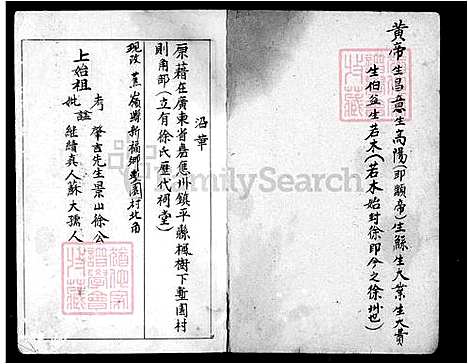 黃帝生昌意生高陽(即顓帝)生鯀生大業生大賁
生伯益生若木(若木始封徐即今之徐州也)
沿革
原藉在廣東省嘉應州鎮平縣楓樹下塹園村
則角部(立有徐氏歷代祠堂)
現改蕉嶺縣新福鄉塹園村北角
上始祖
考 肇吉先生景山徐公
妣 諡 繼續真人蘇大孺人
FamilySearch